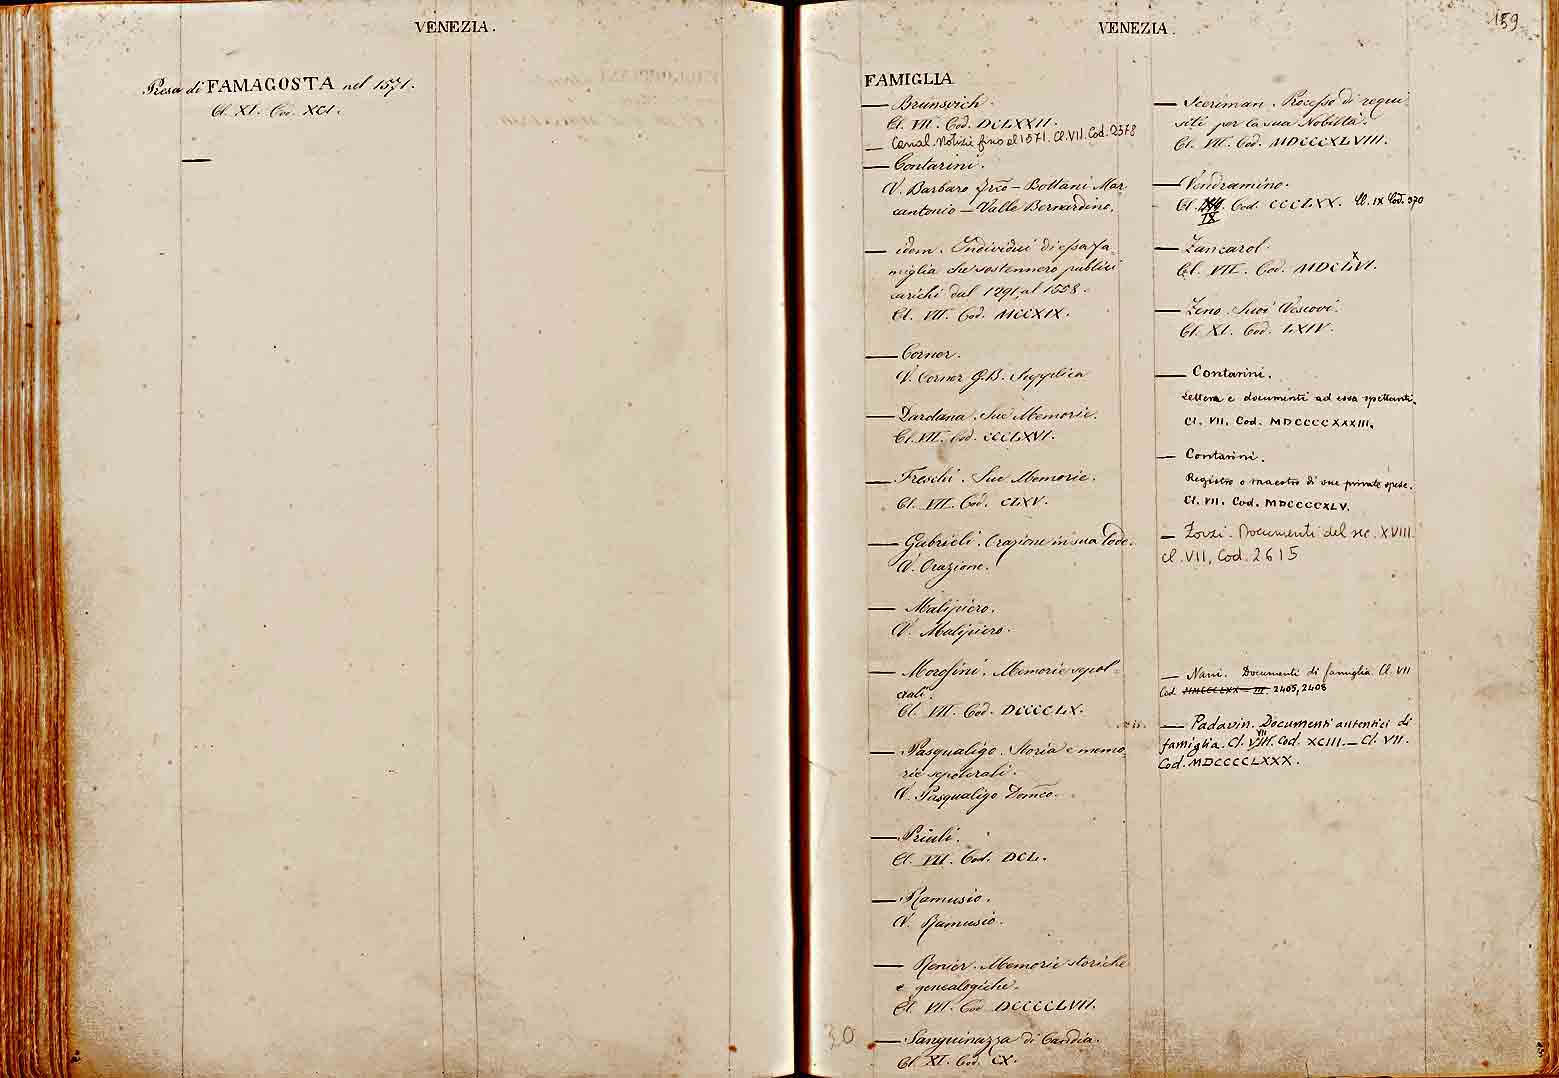 VENEZIA.
Presa di FAMAGOSTA nel 1571.
Cl. XI. Cod. XCI.
VENEZIA.
159
FAMIGLIA
— Brunsvich.
Cl. VII. Cod. DCLXXII.
— Canal. Notizie fino al 1571. Cl. VII. Cod. 2578
— Contarini.
V. Barbaro Frco — Bottani Mar
cantonio — Valle Bernardino.
— idem. Individui di essa fa
miglia che sostennero publici
carichi dal 1291 al 1558.
Cl. VII. Cod. MCCXIX.
— Corner.
V. Corner G.B. Supplica
— Dardana. Sue Memorie.
Cl. VII. Cod. CCCLXVI.
— Freschi. Sue Memorie.
Cl. VII. Cod. CLXV.
— Gabrieli. Orazione in sua lode.
V. Orazione.
— Malipiero.
V. Malipiero.
— Morosini. Memorie sepol=
crali.
Cl. VII. Cod. DCCCCLX.
— Pasqualigo. Storia e memo
rie sepolcrali.
V. Pasqualigo Domco.
— Priuli.
Cl. VII. Cod. DCL.
— Ramusio.
V. Ramusio.
— Renier. Memorie storiche
e genealogiche.
Cl. VII. Cod. DCCCCLVII.
30
— Sanguinazza di Candia.
Cl. XI. Cod. CX.
— Sceriman. Processo di requi
siti per la sua Nobiltà.
Cl. VII. Cod. MDCCCXLVIII.
— Vendramino.
Cl. IX Cod. CCCLXX. Cl. IX Cod. 370
— Zancarol.
Cl. VII. Cod. MDCLXVI.
— Zeno. Suoi Vescovi.
Cl. XI. Cod. LXIV.
— Contarini.
Lettera e documenti ad essa spettanti.
Cl. VII. Cod. MDCCCCXXXIII.
— Contarini.
Registro o maestro di sue private spese.
Cl. VII. Cod. MDCCCCXLV.
— Zorzi. Documenti del sec. XVIII.
cl. VII, Cod. 2615
— Nani. Documenti di famiglia Cl. VII
Cod. 2405, 2408
— Padavin. Documenti autentici di
famiglia. Cl. VII. Cod. XCIII. — Cl. VII.
Cod. MDCCCCLXXX.